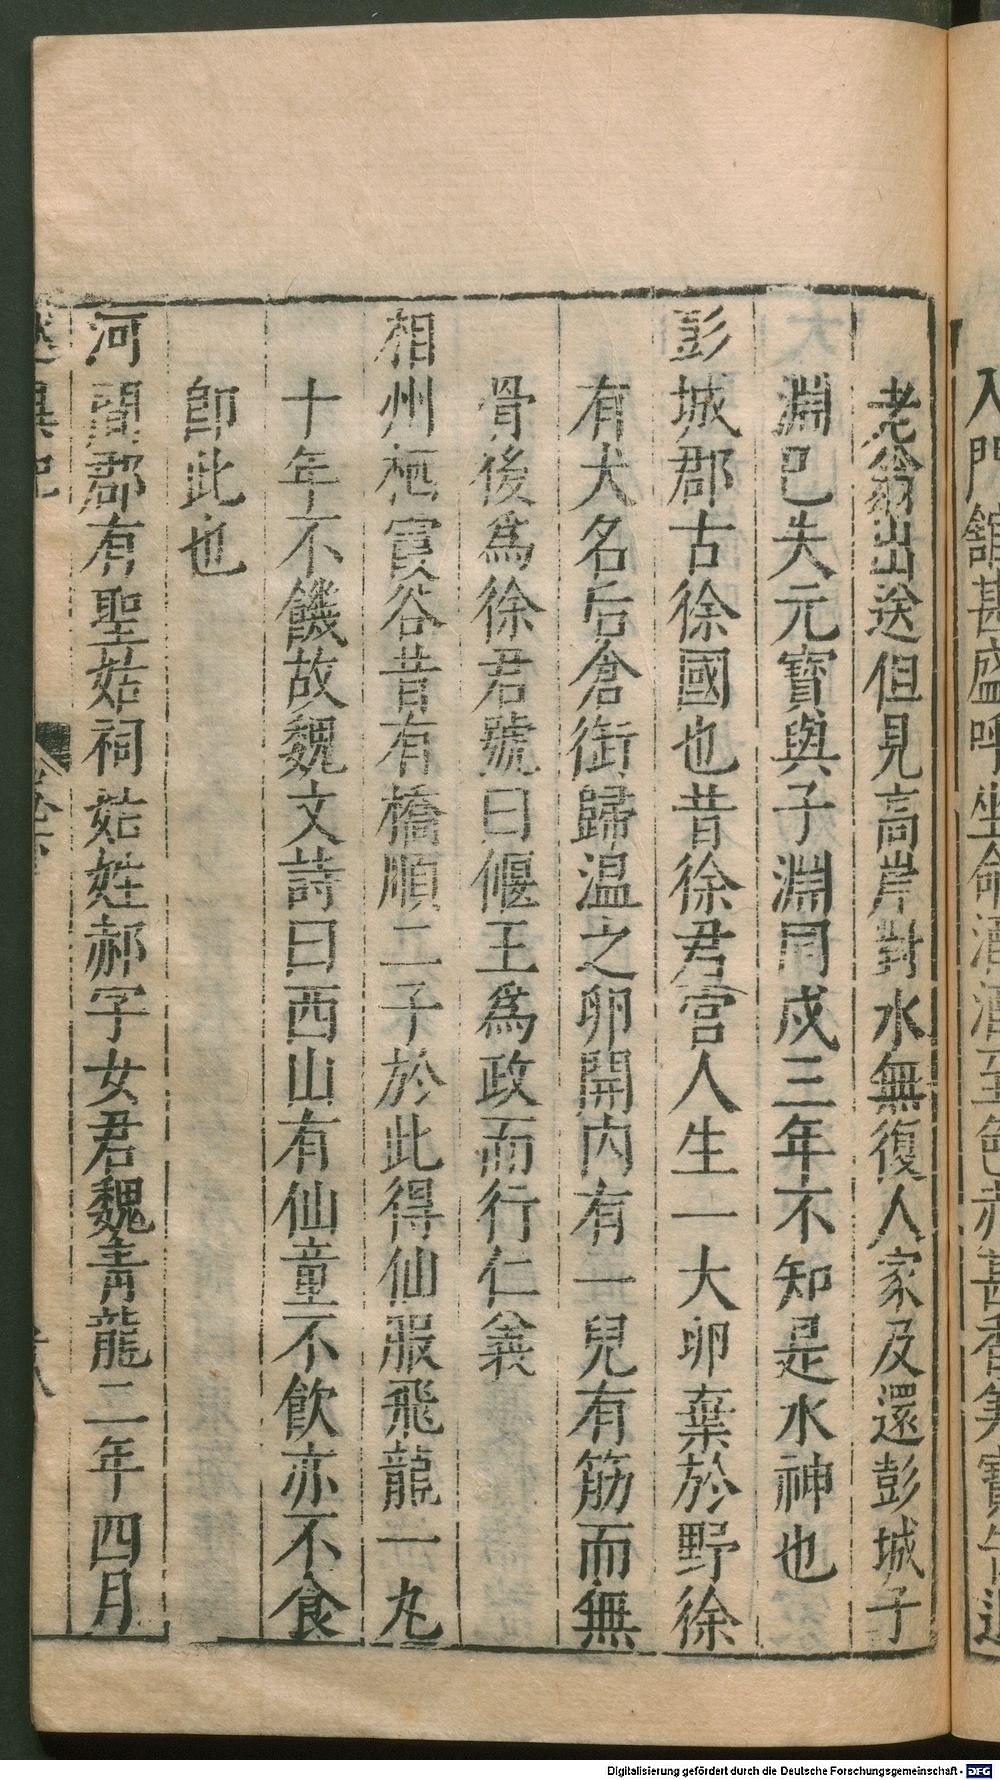 入門館甚盛呼坐命酒酒至色赤甚香笑寶
老翁出送但見高岸對水無復人家及還彭城子
淵已失元寶與子淵同戍三年不知是水神也
彭城郡古徐國也昔徐君宫人生一大卵棄於野徐
有犬名后倉銜歸温之卵開内有一兒有筋而無
骨後爲徐君號曰偃王爲政而行仁義
相州栖霞谷昔有橋順二子於此得仙服飛龍一丸
十年不饑故魏文詩曰西山有仙童不飲亦不食
卽此也
河間郡有聖姑祠姑姓郝字女君魏青龍二年四月
Digitalisierung gefördert durch die Deutsche Forschungsgemeinschaft - DFG